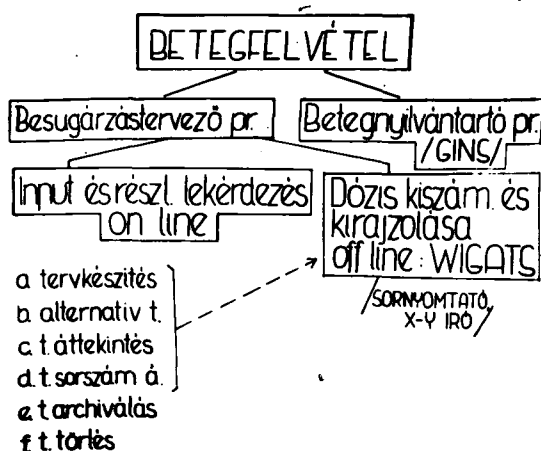 BETEGFELVÉTEL
Besugárzástervező pr.
Betegnyilvántartó pr.
/GINS/
Input és részl. lekérdezés
on line
Dózis kiszám. és
kirajzolása
off line: WIGATS
/SORNYOMTATÓ,
X-Y IRÓ/
a tervkészítés
b. alternativ t.
c. t. áttekintés
d. t. sorszám á.
e. t. archiválás
f. t. törlés